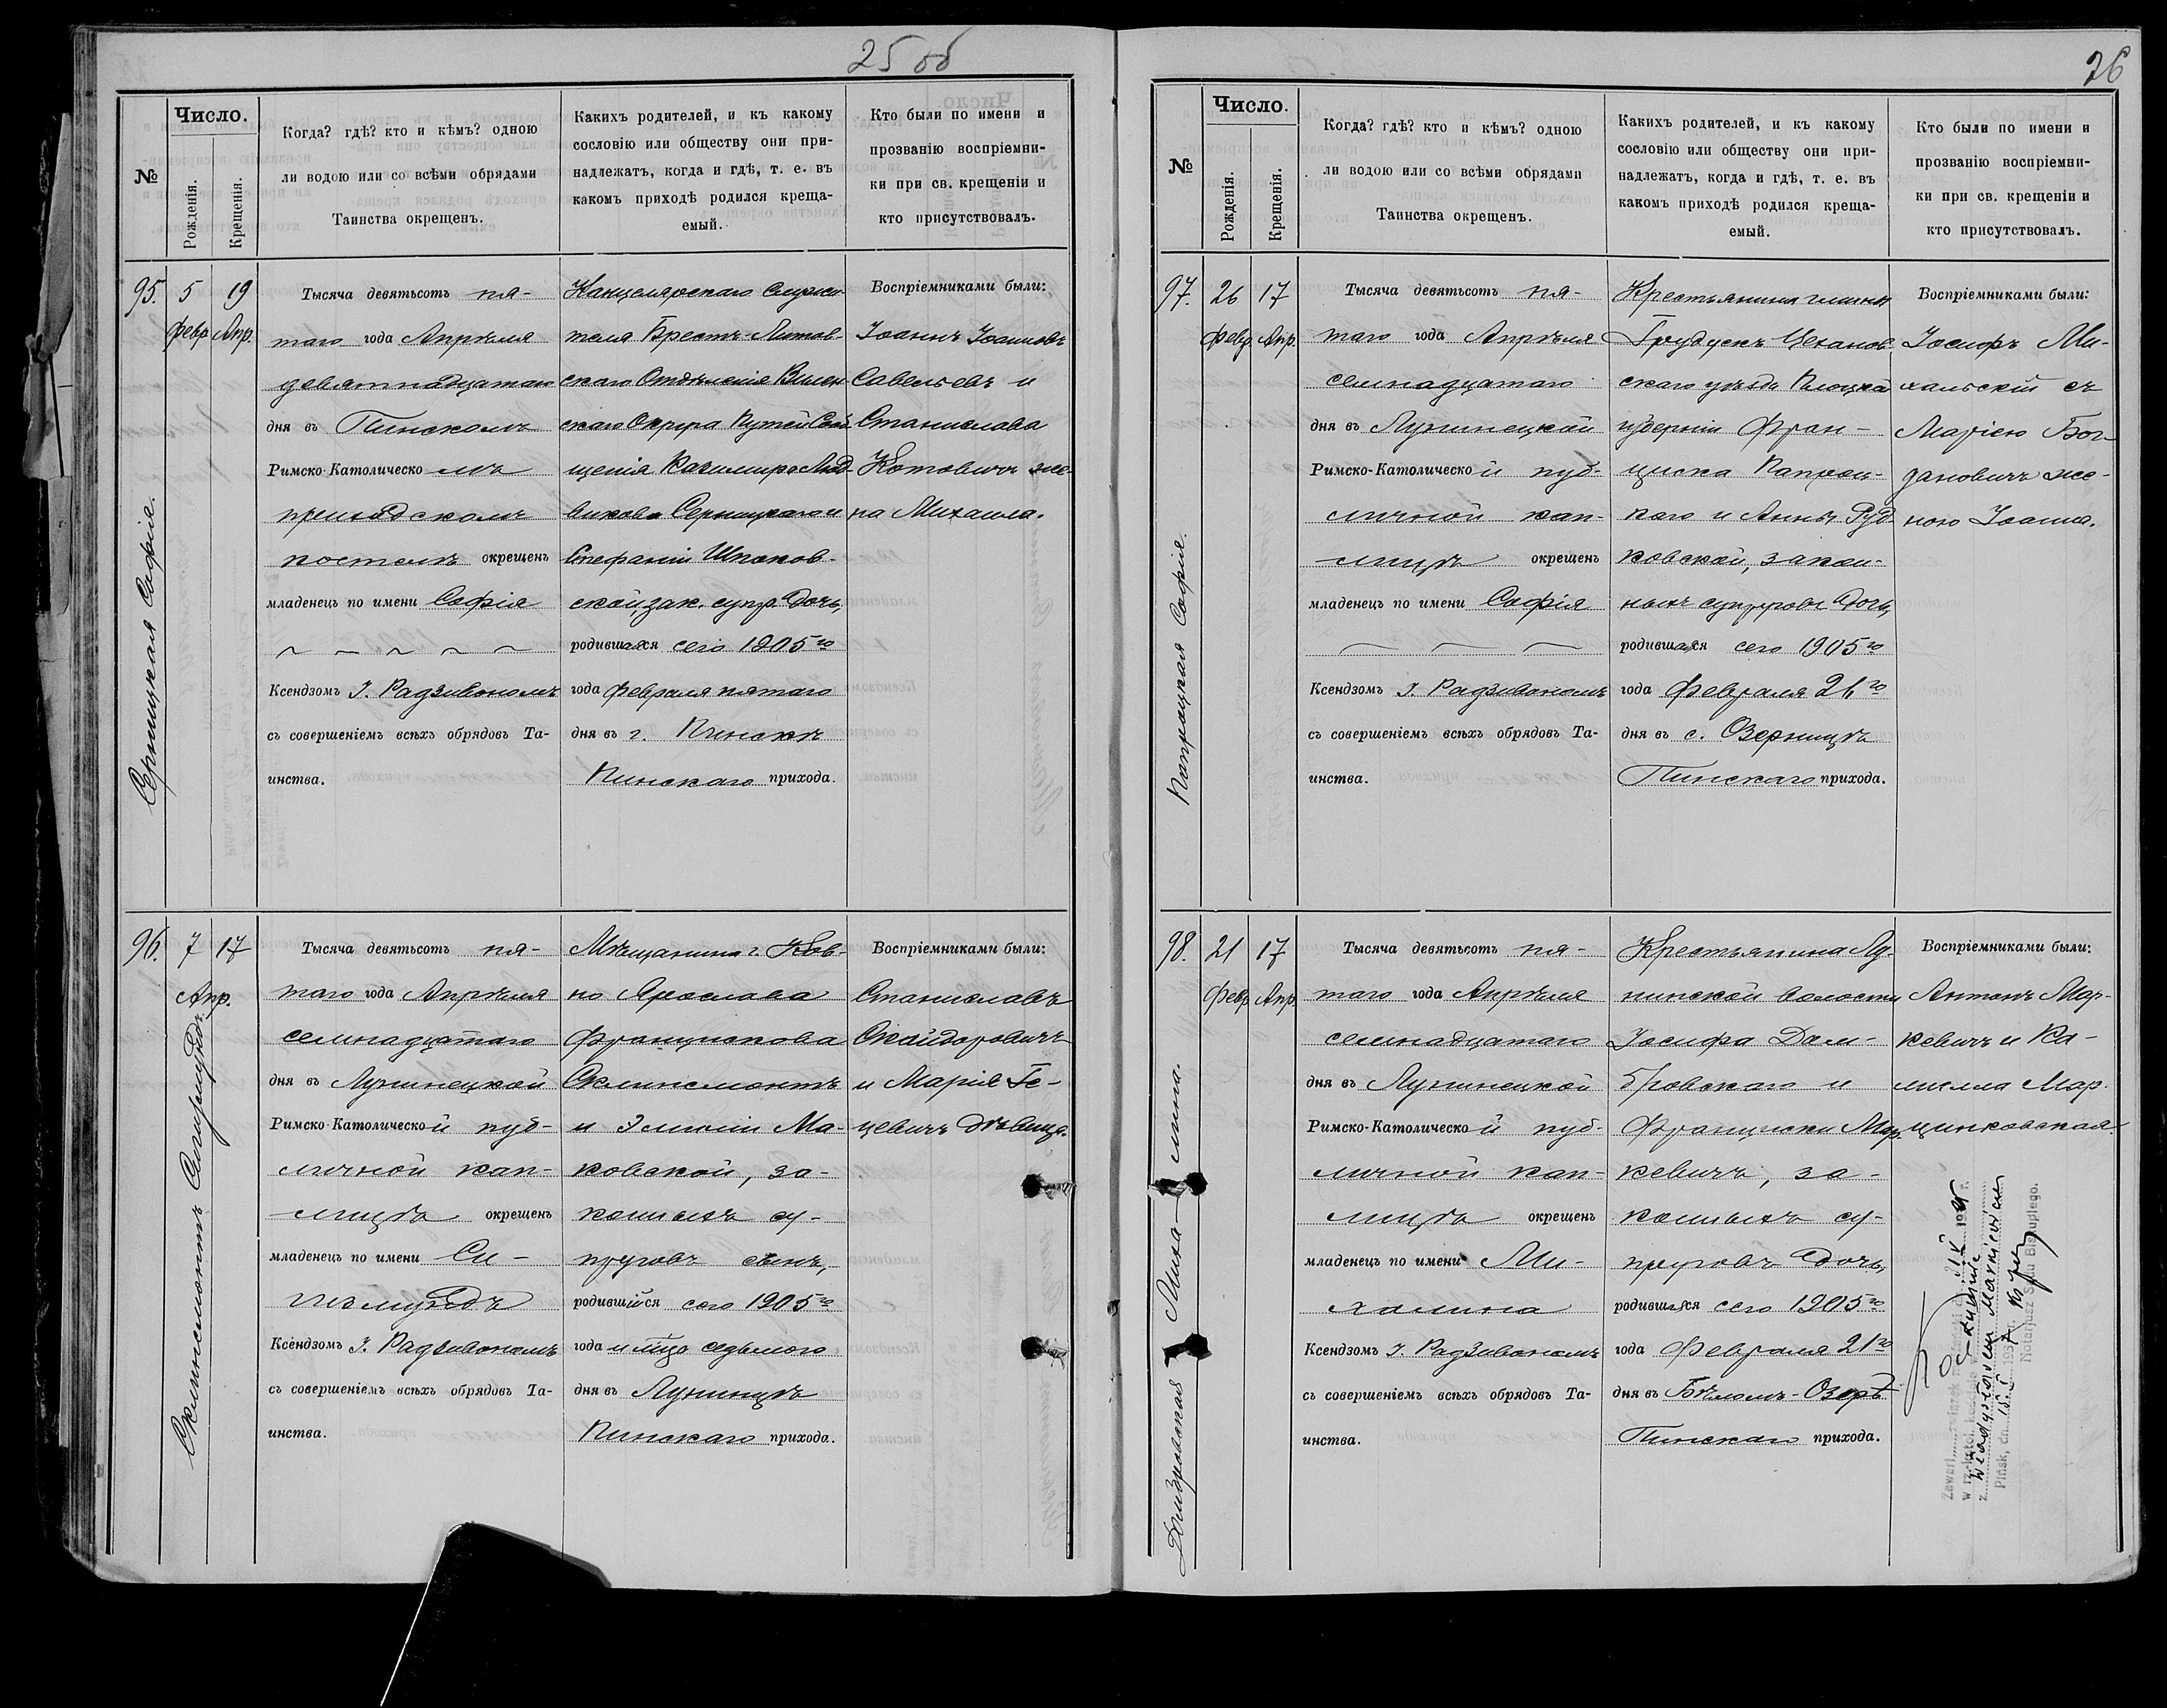 25 об
№
Число.
Рожденія.
Крещенія.
Когда? гдѣ? кто и кѣмъ? одною
ли водою или со всѣми обрядами
Таинства окрещенъ.
Какихъ родителей, и къ какому
сословію или обществу они при-
надлежатъ, когда и гдѣ, т. е. въ
какомъ приходѣ родился креща-
емый.
Кто были по имени и
прозванію воспріемни-
ки при св. крещеніи и
кто присутствовалъ.
95.
Серницкая Софія.
5
Февр
19
Апр.
Тысяча девятьсотъ пя-
таго года Апрѣля
девятнадцатаго
дня въ Пинскомъ
Римско-Католическомъ
приходскомъ
костелѣ окрещенъ
младенецъ по имени Софія
Ксендзомъ І. Радзивономъ
съ совершеніемъ всѣхъ обрядовъ Та-
инства.
Канцелярскаго Служи-
теля Брестъ-Литов-
скаго Отдѣленія Вилен-
скаго Округа Путей Сооб-
щенія Казимира Люд-
викова Серницкаго и
Стефаніи Шпаков-
ской, зак. супр. дочь,
родившаяся сего 1905го
года Февраля пятаго
дня въ г. Пинскѣ
Пинскаго прихода.
Воспріемниками были:
Іоаннъ Іоанновъ
Савельевъ и
Станислава
Котовичъ же-
на Михаила.
96.
Склинсмонтъ Сигизмундъ.
7
17
Апр.
Тысяча девятьсотъ пя-
таго года Апрѣля
семнадцатаго
дня въ Лунинецкой
Римско-Католической пуб-
личной кап-
лицѣ окрещенъ
младенецъ по имени Си-
гизмундъ
Ксендзомъ І. Радзивономъ
съ совершеніемъ всѣхъ обрядовъ Та-
инства.
Мѣщанина г. Ков-
но Ярослава
Францискова
Склинсмонтъ
и Эмиліи Ма-
ковской, за-
конныхъ су-
пруговъ сынъ,
родившійся сего 1905го
года и мца седьмого
дня въ Лунинцѣ
Пинскаго прихода.
Воспріемниками были:
Станиславъ
Скайдоровичъ
и Марія Ге-
цевичъ дѣвица.
26
№
Число.
Рожденія.
Крещенія.
Когда? гдѣ? кто и кѣмъ? одною
ли водою или со всѣми обрядами
Таинства окрещенъ.
Какихъ родителей, и къ какому
сословію или обществу они при-
надлежатъ, когда и гдѣ, т. е. въ
какомъ приходѣ родился креща-
емый.
Кто были по имени и
прозванію воспріемни-
ки при св. крещеніи и
кто присутствовалъ.
97.
Папроцкая Софія.
26
Февр
17
Апр.
Тысяча девятьсотъ пя-
таго года Апрѣля
семнадцатаго
дня въ Лунинецкой
Римско-Католической пуб-
личной кап-
лицѣ окрещенъ
младенецъ по имени Софія
Ксендзомъ І. Радзивономъ
съ совершеніемъ всѣхъ обрядовъ Та-
инства.
Крестьянина гмины
Грудускъ Цеханов-
скаго уѣзда Плоцкой
губерніи Фран-
циска Папроц-
каго и Анны Руд-
ковской, закон-
ныхъ супруговъ дочь,
родившаяся сего 1905го
года Февраля 26го
дня въ с. Озерницѣ
Пинскаго прихода.
Воспріемниками были:
Іосифъ Ми-
хальскій съ
Маріею Бог-
дановичъ же-
ною Іоанна.
98.
Домбровская Михалина.
21
Февр
17
Апр
Тысяча девятьсотъ пя-
таго года Апрѣля
семнадцатаго
дня въ Лунинецкой
Римско-Католической пуб-
личной кап-
лицѣ окрещенъ
младенецъ по имени Ми-
халина
Ксендзомъ І. Радзивономъ
съ совершеніемъ всѣхъ обрядовъ Та-
инства.
Крестьянина Лу-
нинской волости
Іосифа Дом-
бровскаго и
Франциски Мар-
кевичъ, за-
конныхъ су-
пруговъ дочь,
родившаяся сего 1905го
года Февраля 21го
дня въ Бѣломъ-Озерѣ
Пинскаго прихода.
Воспріемниками были:
Антонъ Мар-
кевичъ и Ка-
милла Мар-
цинковская.
w Łuninie
z Władysławem Markiewiczem
Pińsk, dn. 15.I 1937 r.
Notarjusz Sądu Biskupiego.